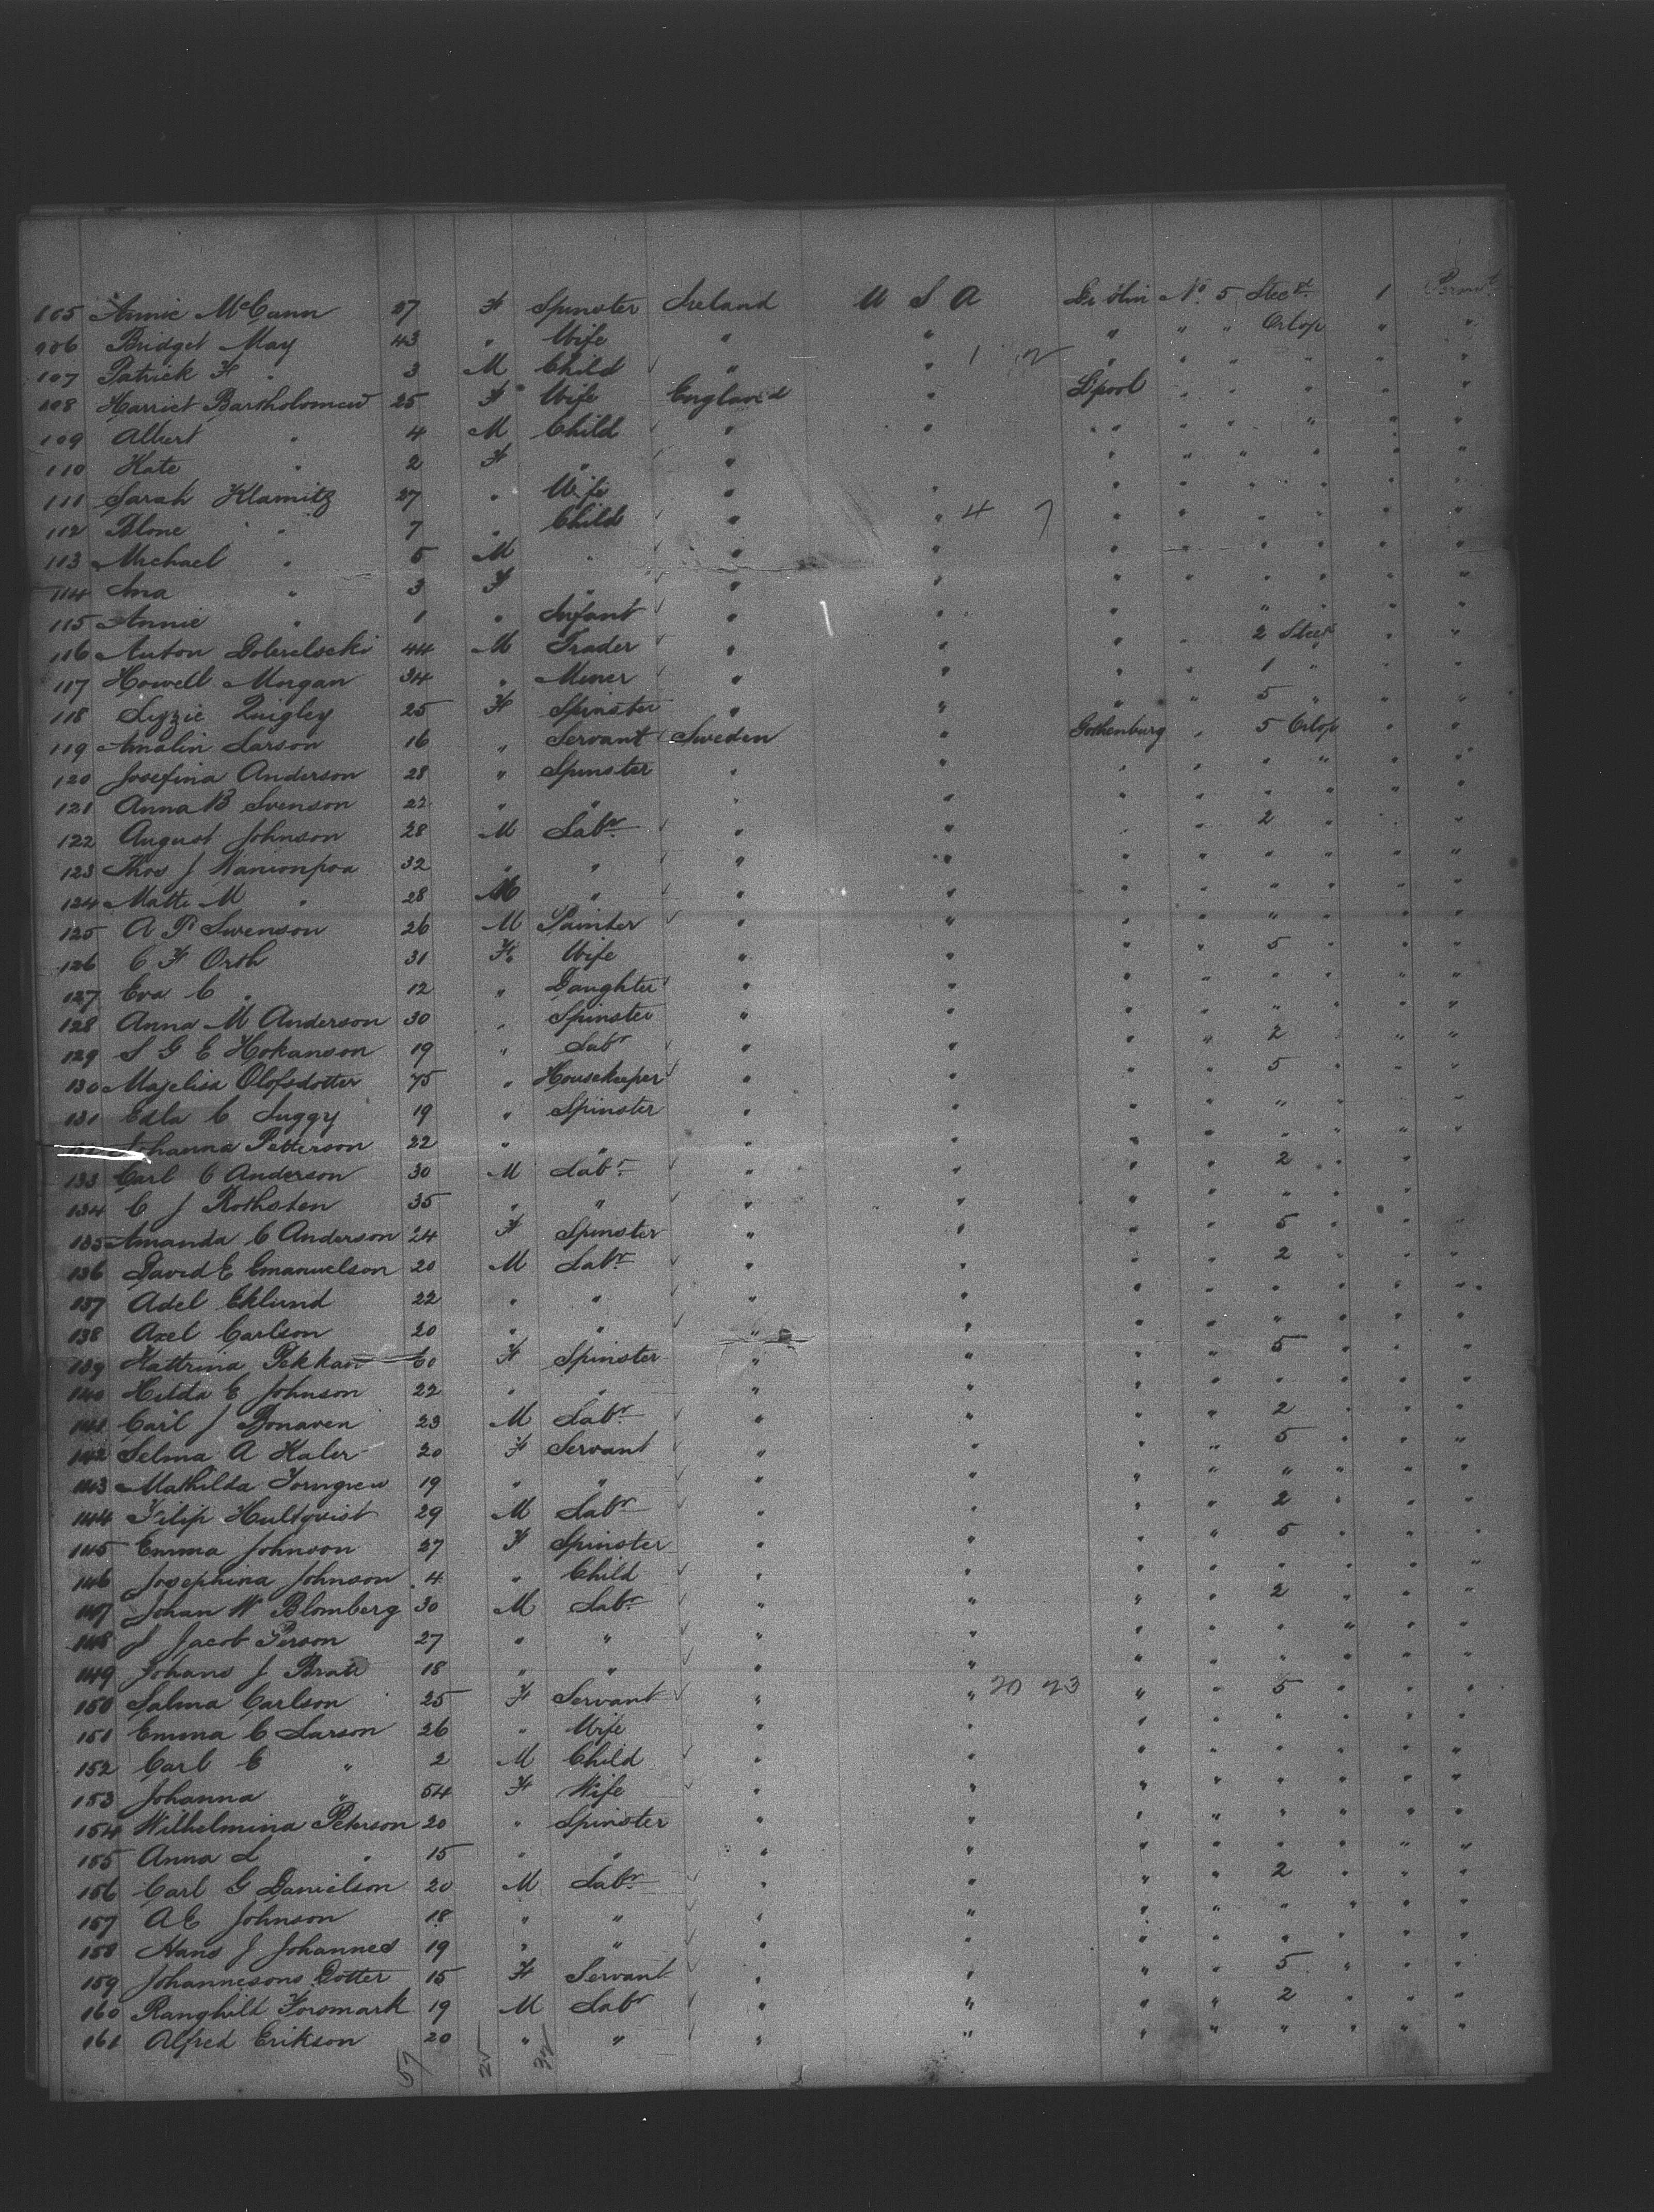 105 Annie McCann 27 F Spinster Ireland U S A Dublin No. 5 Steed. 1
106 Bridget May 43 " Wife " " " " " Orlop " "
107 Patrick F " 3 M Child " " 1 2 " " " " " "
108 Harriet Bartholomew 25 F Wife England " L'pool " " " " "
109 Albert " 4 M Child " " " " " " " "
110 Kate " 2 F " " " " " " " "
111 Sarah Klamitz 27 " Wife " " " " " " " "
112 Blone " 7 " Child " " 4 7 " " " " " "
113 Michael " 5 M " " " " " " " " "
114 Ina " 3 F " " " " " " " " "
115 Annie " 1 " Infant " " " " " " "
116 Anton 44 M Trader " " " " 2 Steed " "
117 Howell Morgan 34 " Miner " " " " 1 " " "
118 Lizzie Quigley 25 F Spinster " " " " 5 " " "
119 Amalin Larson 16 " Servant Sweden " Gothenburg " 5 Orlop " "
120 Josefina Anderson 28 " Spinster " " " " " " " "
121 Anna B Svenson 22 " " " " " " " " " "
122 August Johnson 28 M Labr. " " " " 2 " " "
123 Thos J 32 " " " " " " " " " "
124 Matte M " 28 M " " " " " " " " "
125 A P Swenson 26 M Painter " " " " " " " "
126 C F Orth 31 F. Wife " " " " 5 " " "
127 Eva C " 12 " Daughter " " " " " " " "
128 Anna M Anderson 30 " Spinster " " " " " " " "
129 S G E Hokanson 19 " Labr " " " " 2 " " "
130 Majelisa Olofsdotter 75 " Housekeeper " " " " 5 " " "
131 Edla C Luggy 19 " Spinster " " " " " " " "
Johanna Petterson 22 " " " " " " " " " "
133 Carl C Anderson 30 M Labr. " " " " 2 " " "
134 C J Rothsten 35 " " " " " " " " " "
135 Amanda C Anderson 24 F Spinster " " " " 5 " " "
136 David E Emanuelson 20 M Labr. " " " " 2 " " "
137 Adel Eklund 22 " " " " " " " " " "
138 Axel Carlson 20 " " " " " " " " " "
139 Kattrina Pekkan 60 F Spinster " " " " 5 " " "
140 Hilda E Johnson 22 " " " " " " " " " "
141 Carl J Bonaven 23 M Labr. " " " " 2 " " "
142 Selma A Haler 20 F Servant " " " " 5 " " "
143 Mathilda Torngren 19 " " " " " " " " " "
144 Filip Hultqvist 29 M Labr " " " " 2 " " "
145 Emma Johnson 27 F Spinster " " " " 5 " " "
146 Josephina Johnson 4 " Child " " " " " " " "
147 Johan W Blomberg 30 M Labr. " " " " 2 " " "
148 J Jacob Person 27 " " " " " " " " " "
149 Johans J Brate 18 " " " " " " " " " "
150 Salma Carlson 25 F Servant " " 20 23 " " 5 " " "
151 Emma C Larson 26 " Wife " " " " " " " "
152 Carl C " 2 M Child " " " " " " " "
153 Johanna " 54 F Wife " " " " " " " "
154 Wilhelmina Peterson 20 " Spinster " " " " " " " "
155 Anna L " 15 " " " " " " " " " "
156 Carl G Danielson 20 M Labr. " " " " 2 " " "
157 A E Johnson 18 " " " " " " " " " "
158 Hans J Johannes 19 " " " " " " " " " "
159 Johannesons Dotter 15 F Servant " " " " 5 " " "
160 Ranghild Forsmark 19 M Labr " " " " 2 " " "
161 Alfred Erikson 20 " " " " " " " " " "
57 25 32